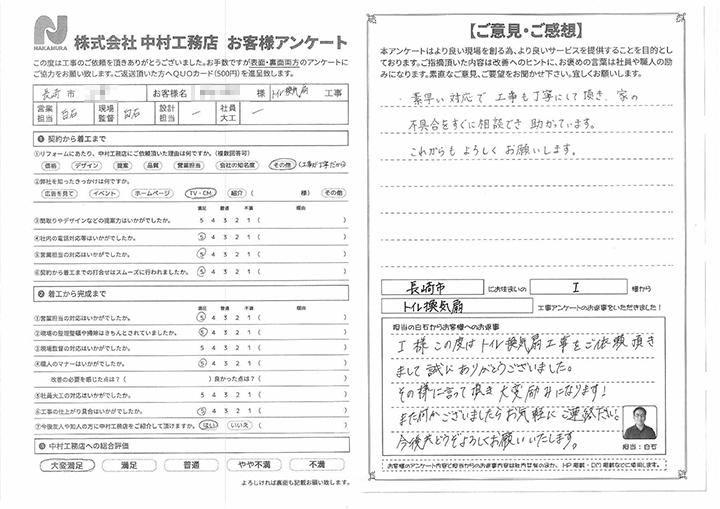 NAKAMURA
株式会社 中村工務店 お客様アンケート
この度は工事のご依頼を頂きありがとうございました。お手数ですが表面・裏面両方のアンケートに
ご協力をお願い致します。ご返送頂いた方へQUOカード(500円)を進呈致します。
長崎 市 お客様名 様 トイレ換気扇 工事
営業担当 白石 現場監督 白石 設計担当 ー 社員大工 ー
❶ 契約から着工まで
①リフォームにあたり、中村工務店にご依頼頂いた理由は何ですか。(複数回答可)
価格 デザイン 提案 品質 営業担当 会社の知名度 その他 (工事が丁寧だから
②弊社を知ったきっかけは何ですか。
広告を見て イベント ホームページ TV・CM 紹介 ( 様) その他
満足 普通 不満 理由
③間取りやデザインなどの提案力はいかがでしたか。 5 4 3 2 1 ( )
④社内の電話対応等はいかがでしたか。 5 4 3 2 1 ( )
⑤営業担当の対応はいかがでしたか。 5 4 3 2 1 ( )
⑥契約から着工までの打合せはスムーズに行われましたか。 5 4 3 2 1 ( )
❷ 着工から完成まで
満足 普通 不満 理由
①営業担当の対応はいかがでしたか。 5 4 3 2 1 ( )
②現場の整理整頓や掃除はきちんとされていましたか。 5 4 3 2 1 ( )
③現場監督の対応はいかがでしたか。 5 4 3 2 1 ( )
④職人のマナーはいかがでしたか。 5 4 3 2 1 ( )
改善の必要を感じた点は?( )良かった点は?( )
⑤社員大工の対応はいかがでしたか。 5 4 3 2 1 ( )
⑥工事の仕上がり具合はいかがでしたか。 5 4 3 2 1 ( )
⑦今後友人や知人の方に中村工務店をご紹介して頂けますか。 はい いいえ ( )
❸ 中村工務店への総合評価
大変満足 満足 普通 やや不満 不満
よろしければ裏面も記載お願い致します。
【ご意見・ご感想】
本アンケートはより良い現場を創る為、より良いサービスを提供することを目的とし
ております。ご指摘頂いた内容は改善へのヒントに、お褒めの言葉は社員や職人の励
みになります。素直なご意見、ご要望をお聞かせ下さい。宜しくお願いします。
素早い対応で 工事も丁寧にして頂き、家の
不具合をすぐに相談でき 助かっています。
これからも よろしく お願いします。
長崎市 にお住まいの I 様から
トイレ換気扇 工事アンケートのお返事をいただきました!
担当の白石からお客様へのお返事
I 様 この度は トイレ換気扇工事をご依頼頂き
まして誠に ありがとうございました。
その様に言って頂き 大変励みになります!
また何かございましたらお気軽に ご連絡下さい。
今後共どうぞよろしくお願いいたします。
担当:白石